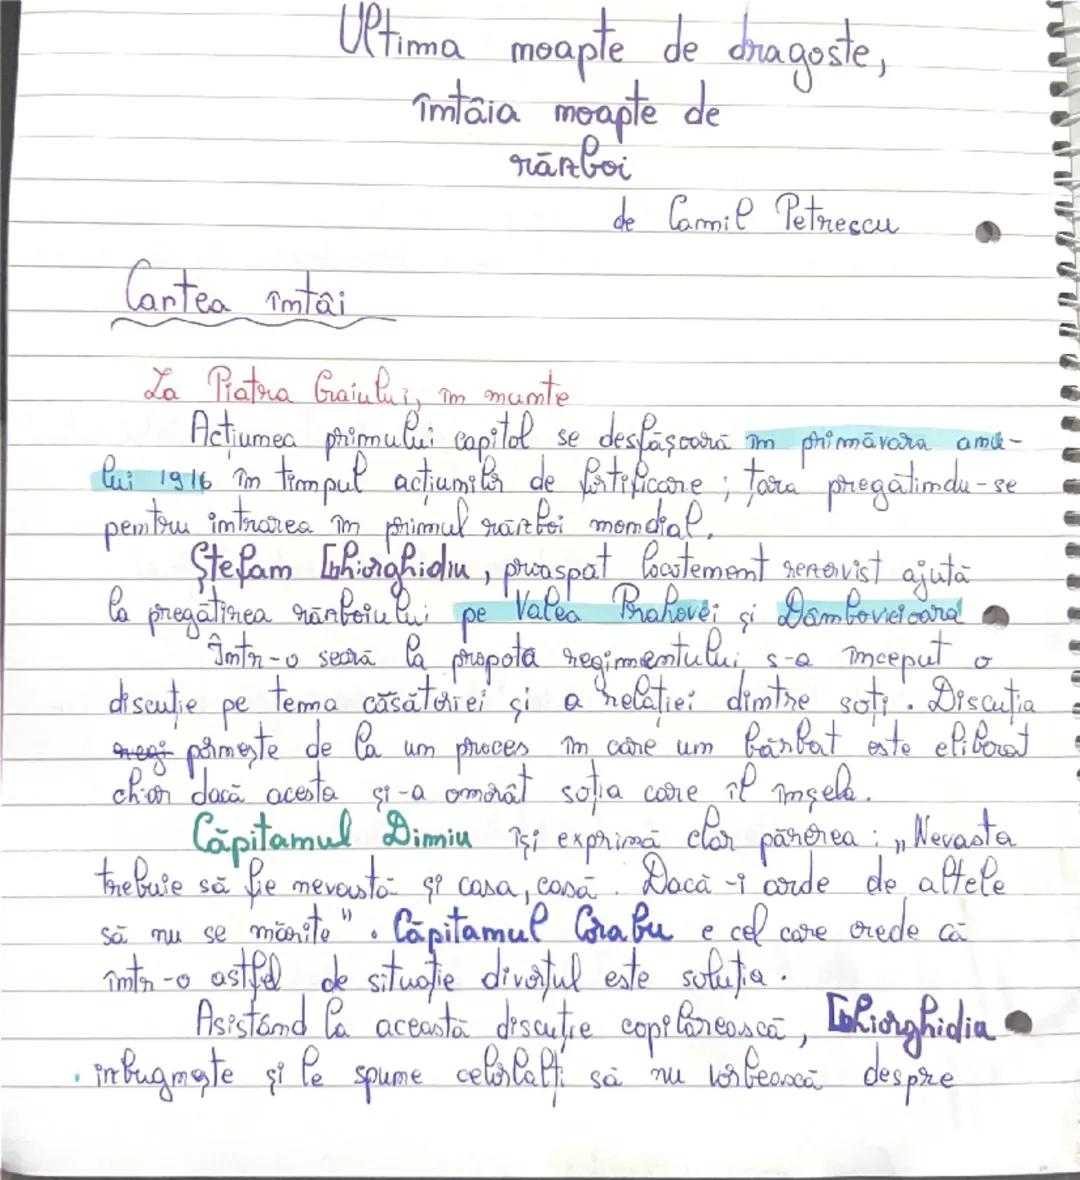 Ultima noapte de dragoste,
întâia noapte de
război
de Camil Petrescu
Cartea întâi
La Piatra Craiului, în munte
Acțiunea primului capitol se desfășoară în primăvara anu-
lui 1916 în timpul acțiunilor de fortificare; țara pregătindu-se
pentru intrarea în primul război mondial.
Ștefan Ghiorghidiu, proaspăt locotenent rezervist ajută
la pregătirea războiului pe Valea Prahovei și Dâmbovicioara
Într-o seară la popota regimentului, s-a început o
discuție pe tema căsătoriei și a relației dintre soți. Discuția
pornește de la un proces în care un bărbat este eliberat
chiar dacă acesta și-a omorât soția care îl înșela.
Căpitanul Dimiu își exprimă clar părerea: „Nevasta
trebuie să fie nevastă și casa, casă. Dacă-i arde de altele
să nu se mărite". Căpitanul Corabu e cel care crede că
într-o astfel de situație divorțul este soluția.
Asistând la această discuție copilărească, Ghiorghidiu
izbugnește și le spune celorlalți să nu vorbească despre